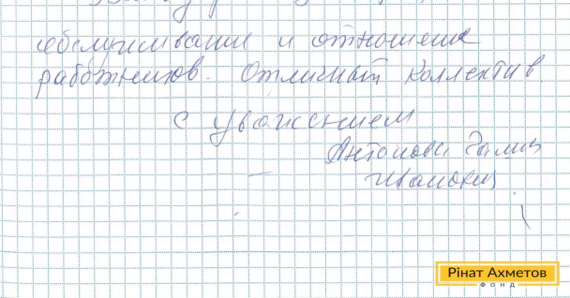 обслуживании и отношения
работников. Отличный коллектив
с уважением
Антонова Галина
Ивановна
Рінат Ахметов
ФОНД